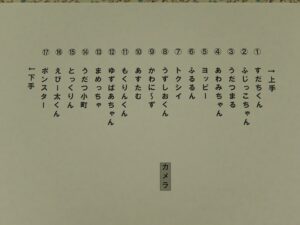 →上手
① すだちくん
② ふじっこちゃん
③ うだつまる
④ あわみちゃん
⑤ ヨッピー
⑥ ふるるん
⑦ トクシィ
⑧ うずしおくん
⑨ かわに~ず
⑩ あすたむ
⑪ もくりんくん
⑫ ゆずばあちゃん
⑬ まめっちゃ
⑭ うだつ小町
⑮ とっくりん
⑯ えびー太くん
⑰ ポンスター
←下手
カメラ